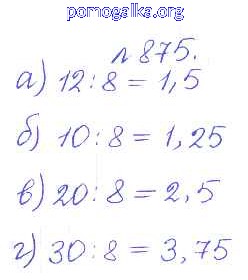 pomogalka.org
№ 875.
а) 12 : 8 = 1,5
б) 10 : 8 = 1,25
в) 20 : 8 = 2,5
г) 30 : 8 = 3,75